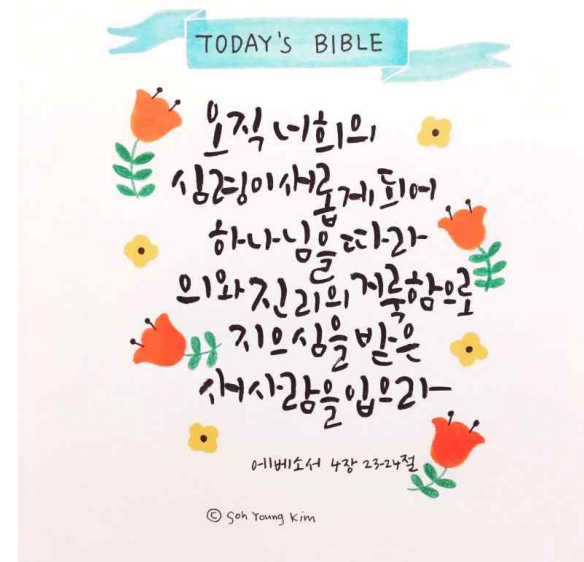 TODAY'S BIBLE
오직 너희의
심령이 새롭게 되어
하나님을 따라
의와 진리의 거룩함으로
지으심을 받은
새사람을 입으라
에베소서 4장 23-24절
© Soh Young Kim